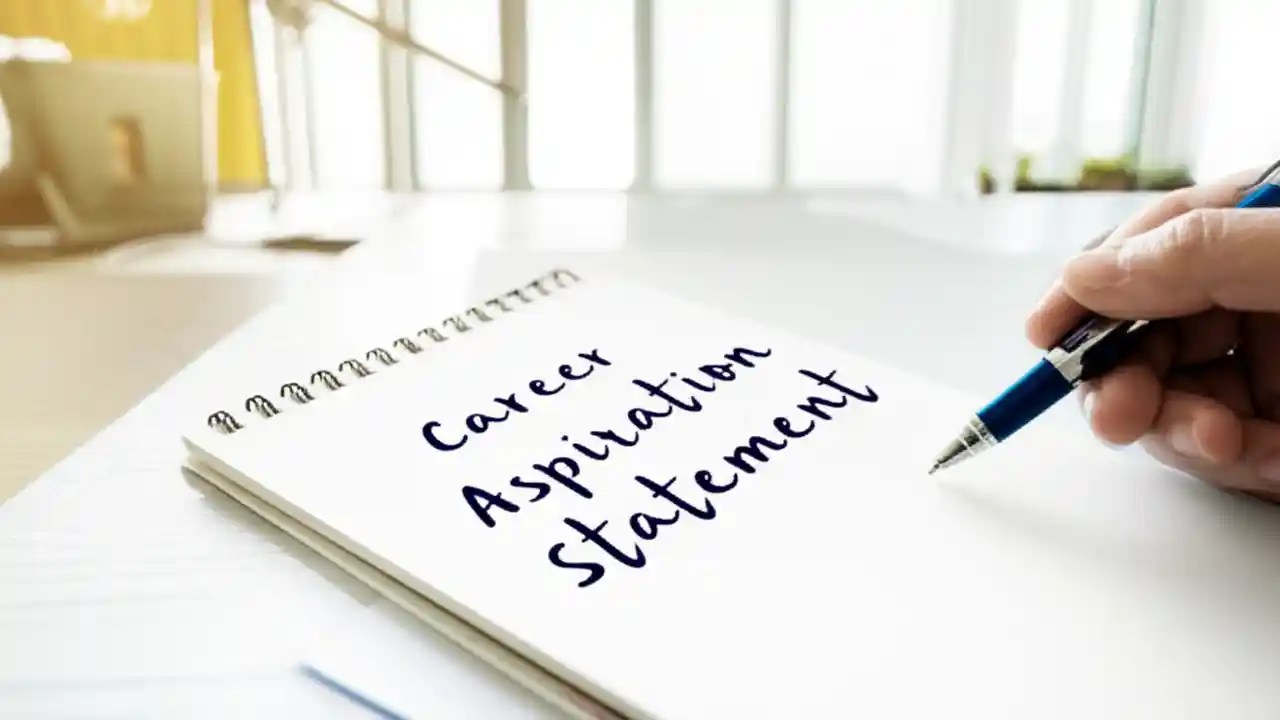 Career
Aspiration
Statement